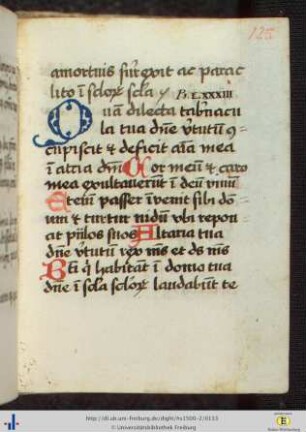 125
amortuis surrexit ac parac
lito ī sclor̄ scla Ps LXXXIII
Quā dilecta tabnacu
la tua dn̄e v̄tutū ꝯ
cupiscit & deficit aīa mea
ī atria dnī Cor meū & caro
mea exultaverūt ī deū vivū
Etenī passer īvenit sibi do
um & turtur nidū ubi repon
at pullos suos Altaria tua
dn̄e v̄tutū rex ms et ds ms
Bti q̄ habitāt ī domo tua
dn̄e ī scla sclor̄ laudabūt te
http://dl.ub.uni-freiburg.de/diglit/hs1500-2/0133
© Universitätsbibliothek Freiburg